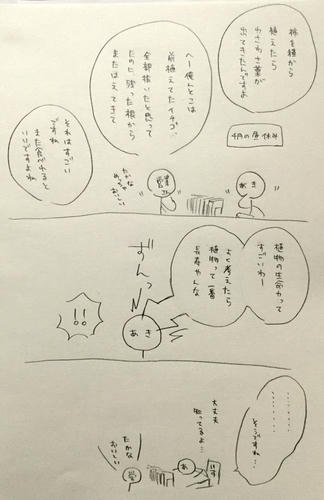 柿を種から
植えたら
わさわさ葉が
出てきたんですよ
4月の昼休み
へー俺んとこは
前植えてたイチゴ、
全部抜いたと思って
たのに、残った根から
またはえてきて
それはすごい
ですね
また食べれると
いいですよね
あき
営業
さん
たかな
めっちゃ
おいしい
植物の生命力って
すごいわー
よく考えたら
植物って一番
長寿やんな
ずんっ
あき
!!
………
………
そうですね…
大丈夫
知ってるよ…
あ
営
たかな
おいしい